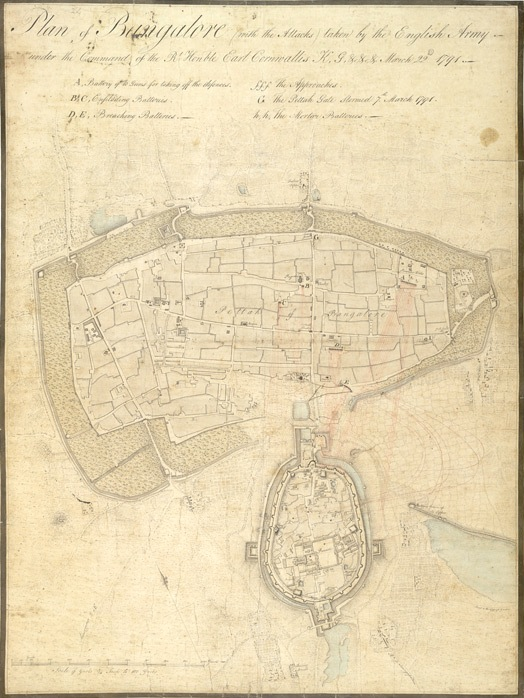 Plan of Bangalore (with the Attacks) taken by the English Army
under the Command of the Rt. Honble. Earl Cornwallis K.G. &c. &c. &c. March 22d. 1791.
A, Battery of Guns for taking off the defences.
B,C, Enfilading Batteries
D, E, Breaching Batteries.
fff the Approaches.
G the Pettah Gate Stormed 7th March 1791.
h, h, the Mortar Batteries.
G
Pettah of Bangalore
Scale of Yards